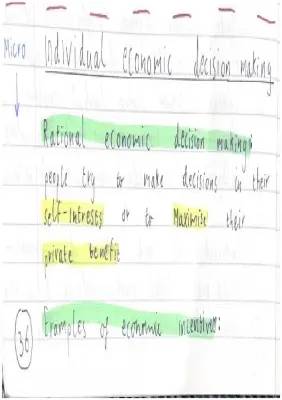 Micro
Individual economic decision making
Rational economic decision making:
people try to make decisions in their
self-intrests or to Maximise their
private benefit
36
Examples of economic incentives: